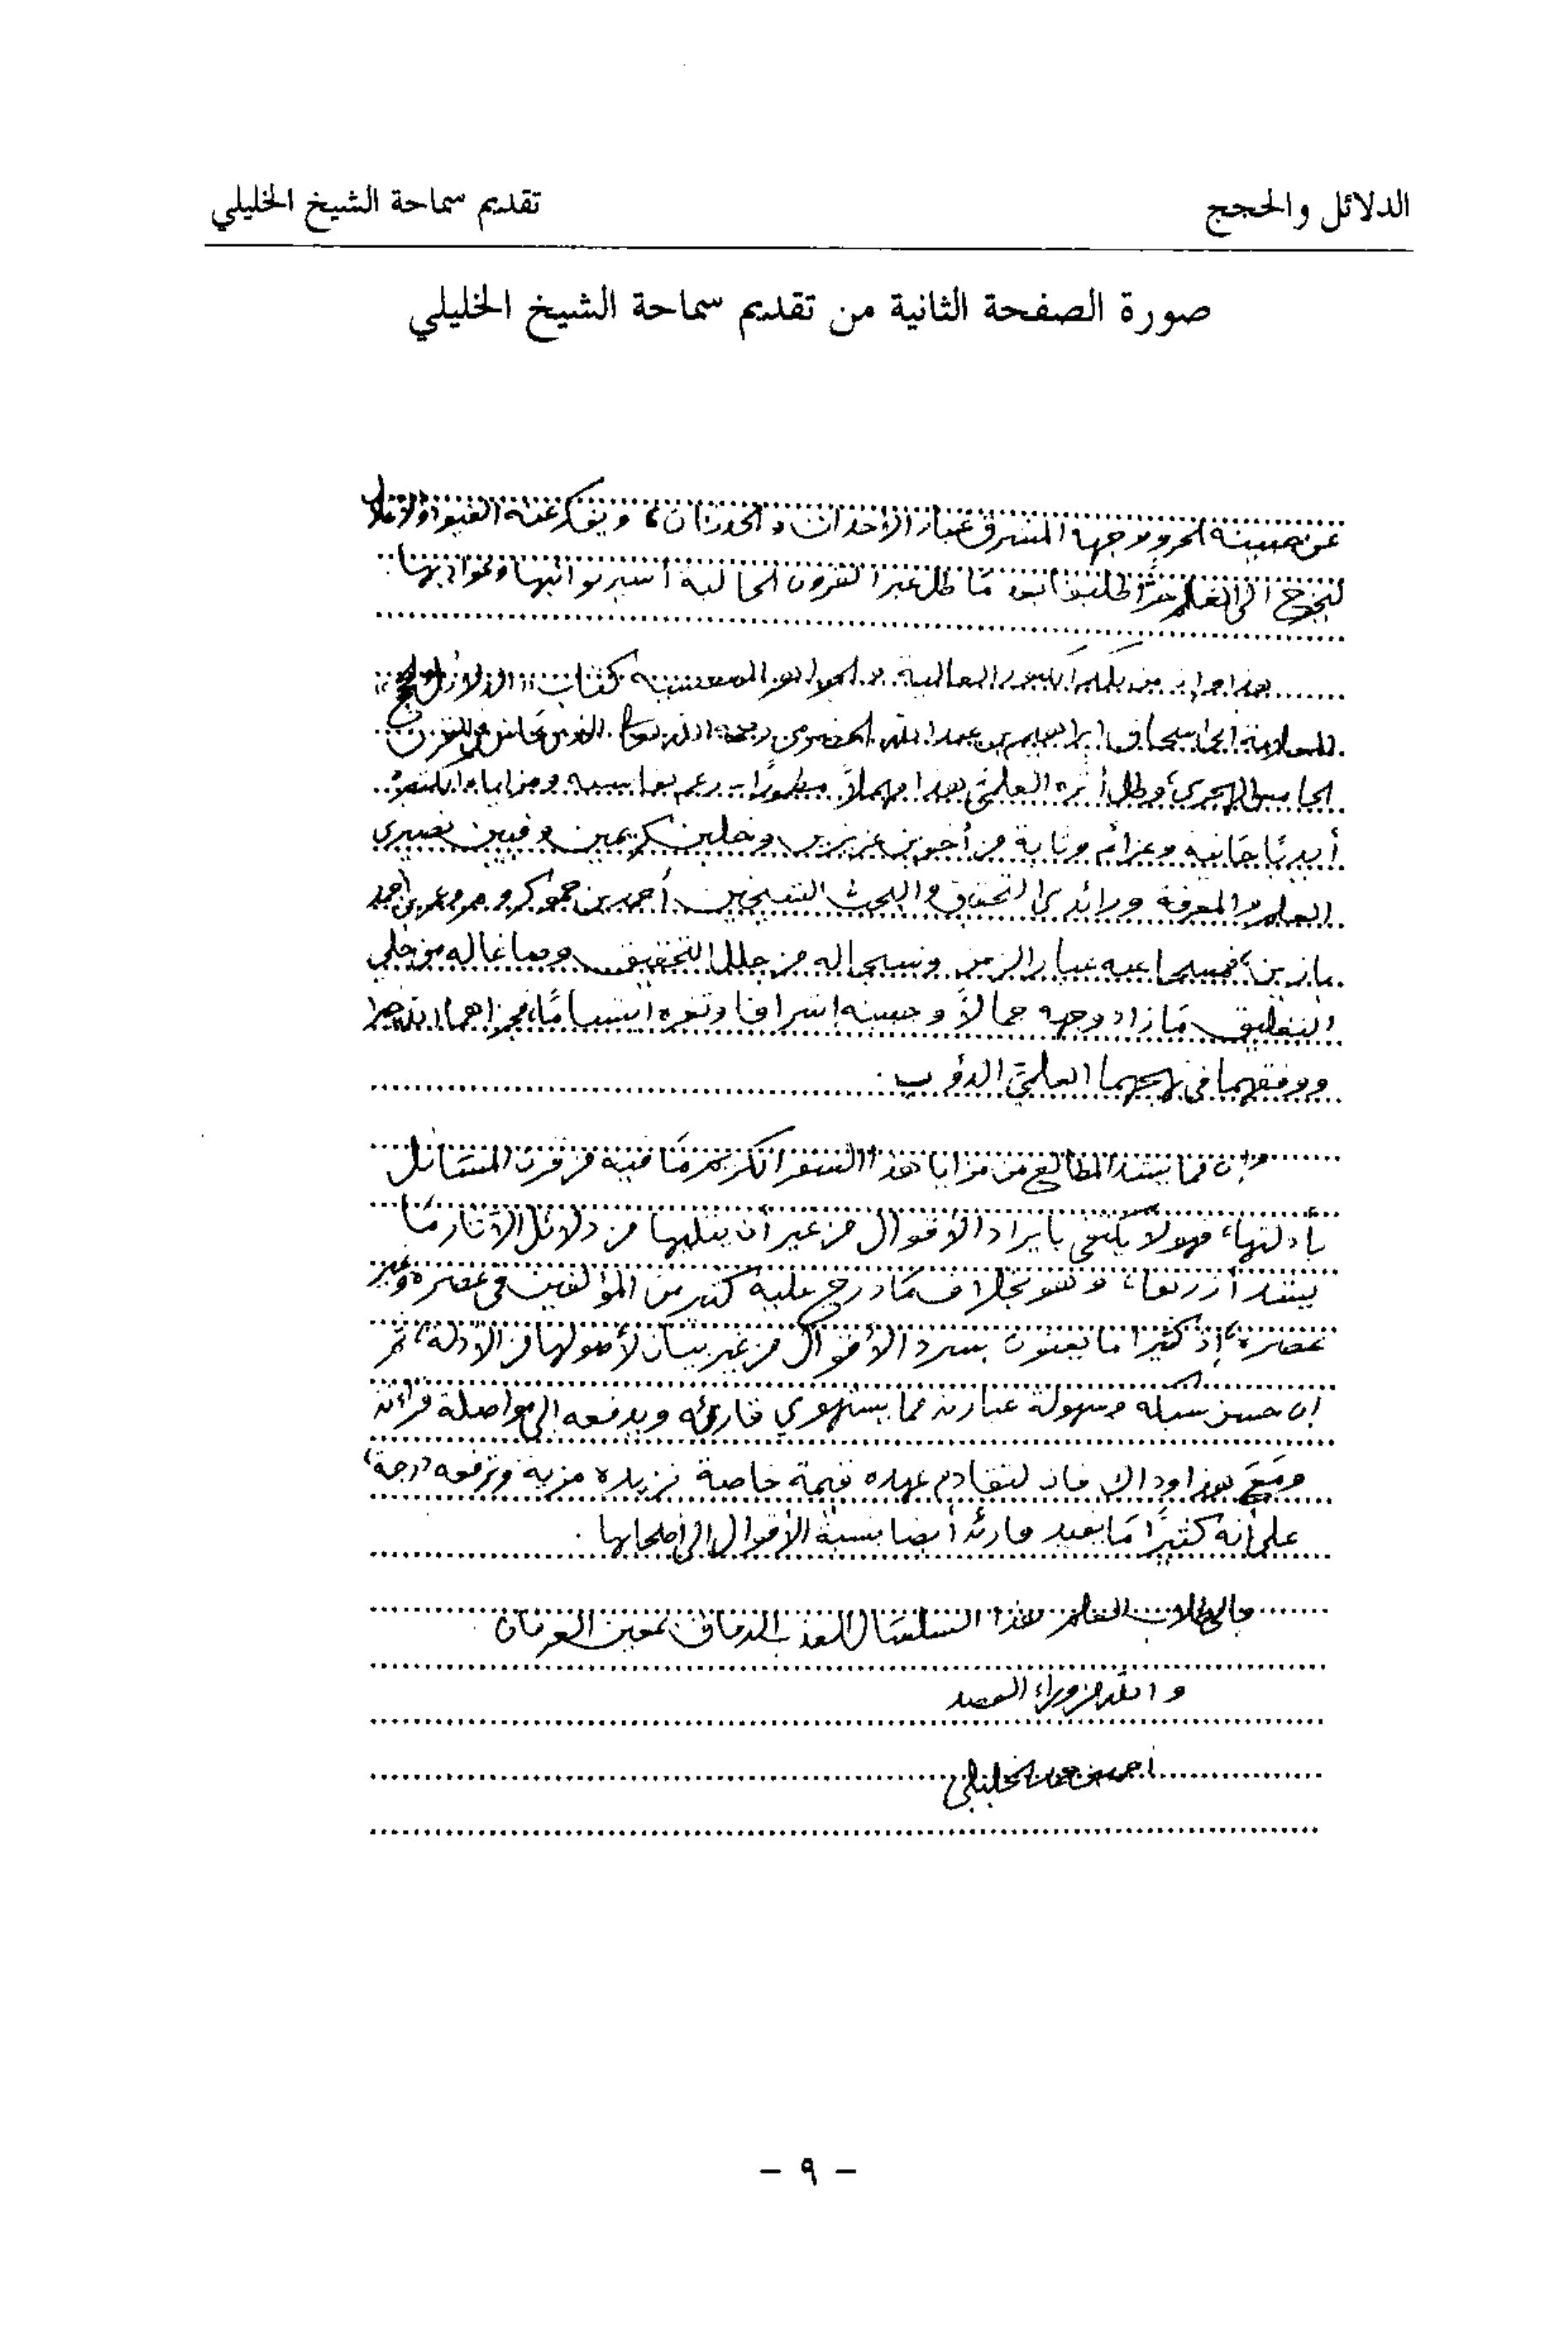 الدلائل والحجج
تقديم سماحة الشيخ الخليلي
صورة الصفحة الثانية من تقديم سماحة الشيخ الخليلي
عن جبينه الحر ووجهه المشرق غبار الأحداث والحدثان، ويفك عنه القيود والأغلال
ليخرج إلى العالم حرًّا طليقًا ما ظل عبر القرون الخالية أسير
هذا وإن من تلكم الكنوز الغالية كتاب «الدلائل والحجج»
للعلامة أبي إسحاق إبراهيم بن عبدالله الحضرمي رحمه الله تعالى الذي عاش في القرن
الخامس الهجري، وظل أثره العلمي هذا مهملاً مطمورًا رغم نفاسته ومزاياه
أيديًا حانية وعزائم من أخوين عزيزين وخلين كريمين وفيين نصيري
العلم والمعرفة ورائدي التحقيق والبحث الشيخين أحمد بن حمو كروم وعمر بن أحمد
بازين، فمسحا عنه غبار الزمن ونسجا له من حلل التحقيق وصاغا له من حلي
التعليق ما زاد وجهه جمالاً وجبينه إشراقا وثغره ابتسامًا، فجزاهما الله خيرا
ووفقهما في نهجهما العلمي الدؤوب.
وإن مما يشد المطالع من مزايا هذا السفر الكريم ما فيه من قرن المسائل
بأدلتها، فهو لا يكتفي بإيراد الأقوال من غير أن ينقلها من دلائل الآثار ما
يشد أزرها، وهو بخلاف ما درج عليه كثير من المؤلفين في عصره وغير
عصره، إذ كثيرا ما يعنون بسرد الأقوال من غير بيان لأصولها من الأدلة، ثم
إن حسن سبكه وسهولة عبارته مما يستهوي قارئه ويدفعه إلى مواصلة قراءته
ومع هذا وذاك فإن لتقادم عهده قيمة خاصة تزيده مزية وترفعه درجة،
على أنه كثيرًا ما يفيد قارئه أيضا بنسبة الأقوال إلى أصحابها.
فإلى طلاب العلم هذا السلسال العذب الدفاق بمعين العرفان
والله من وراء القصد
أحمد بن حمد الخليلي
– ٩ –